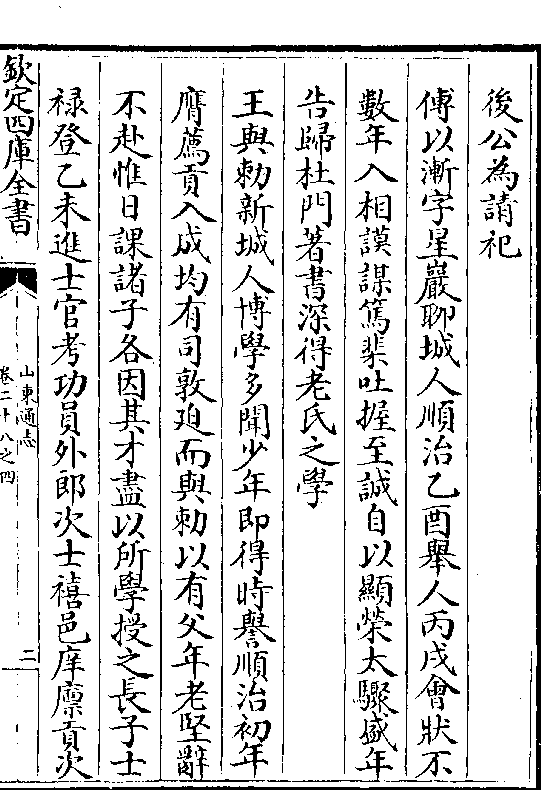 後公為請祀
傅以漸字星巖聊城人順治乙酉舉人丙戌會狀不
數年入相謨謀篤棐吐握至誠自以顯榮太驟盛年
告歸杜門著書深得老氏之學
王與勅新城人博學多聞少年即得時譽順治初年
膺薦貢入成均有司敦迫而與勅以有父年老堅辭
不赴惟日課諸子各因其才盡以所學授之長子士
禄登乙未進士官考功員外郎次士禧邑庠廪貢次
欽定四庫全書
山東通志
卷二十八之四
二